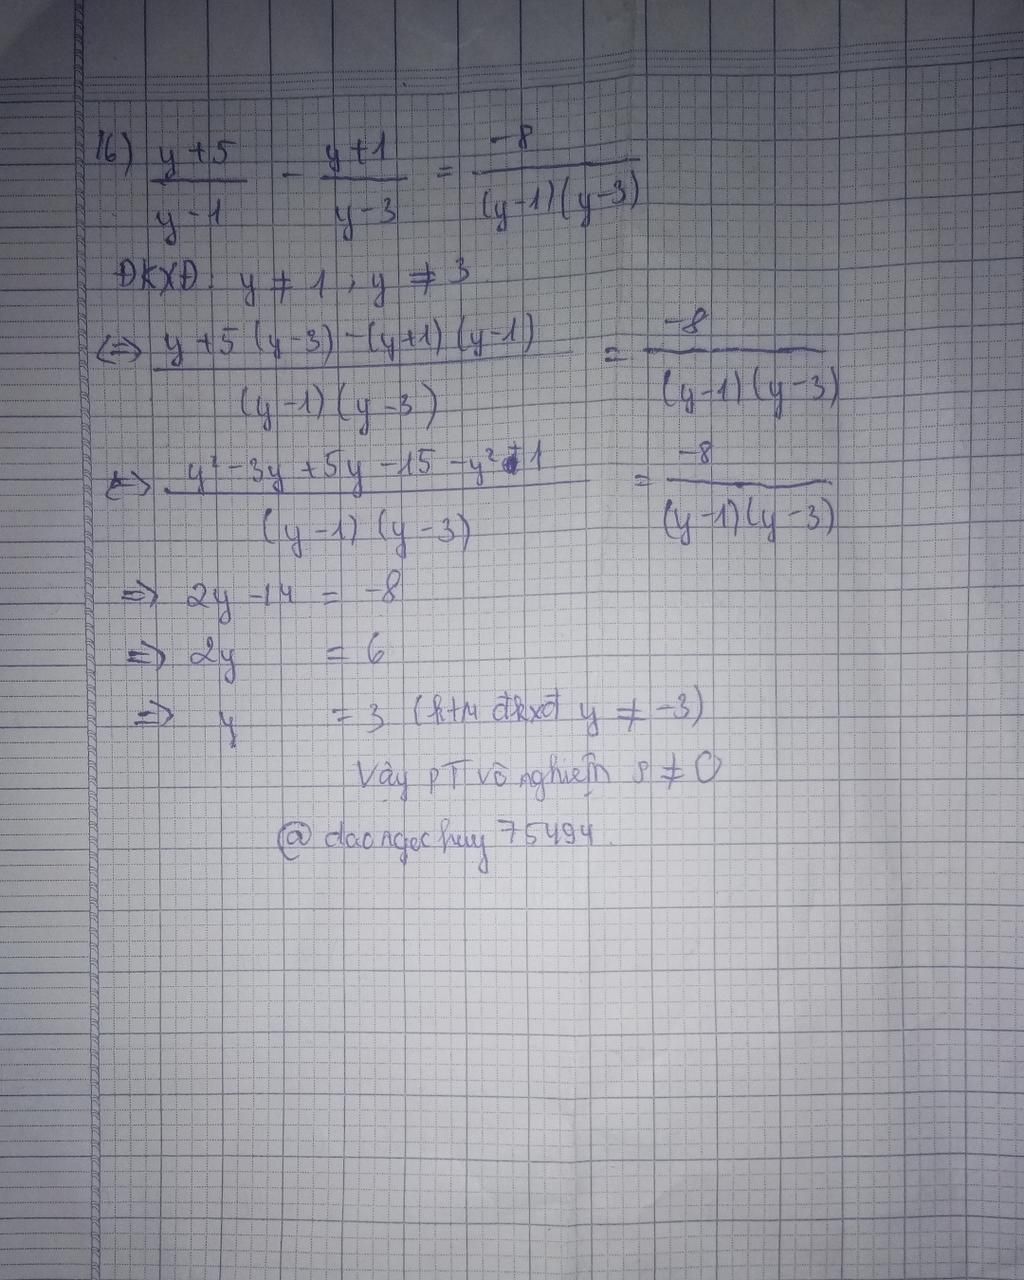 16) (y+5)/(y-1) - (y+1)/(y-3) = -8/((y-1)(y-3))
ĐKXĐ: y ≠ 1, y ≠ 3
<=> (y+5(y-3) - (y+1)(y-1))/((y-1)(y-3)) = -8/((y-1)(y-3))
<=> (y² - 3y + 5y - 15 - y² + 1)/((y-1)(y-3)) = -8/((y-1)(y-3))
=> 2y - 14 = -8
=> 2y = 6
=> y = 3 (ktm đkxđ y ≠ -3)
Vậy PT vô nghiệm S ≠ 0
@daongochuy75494.